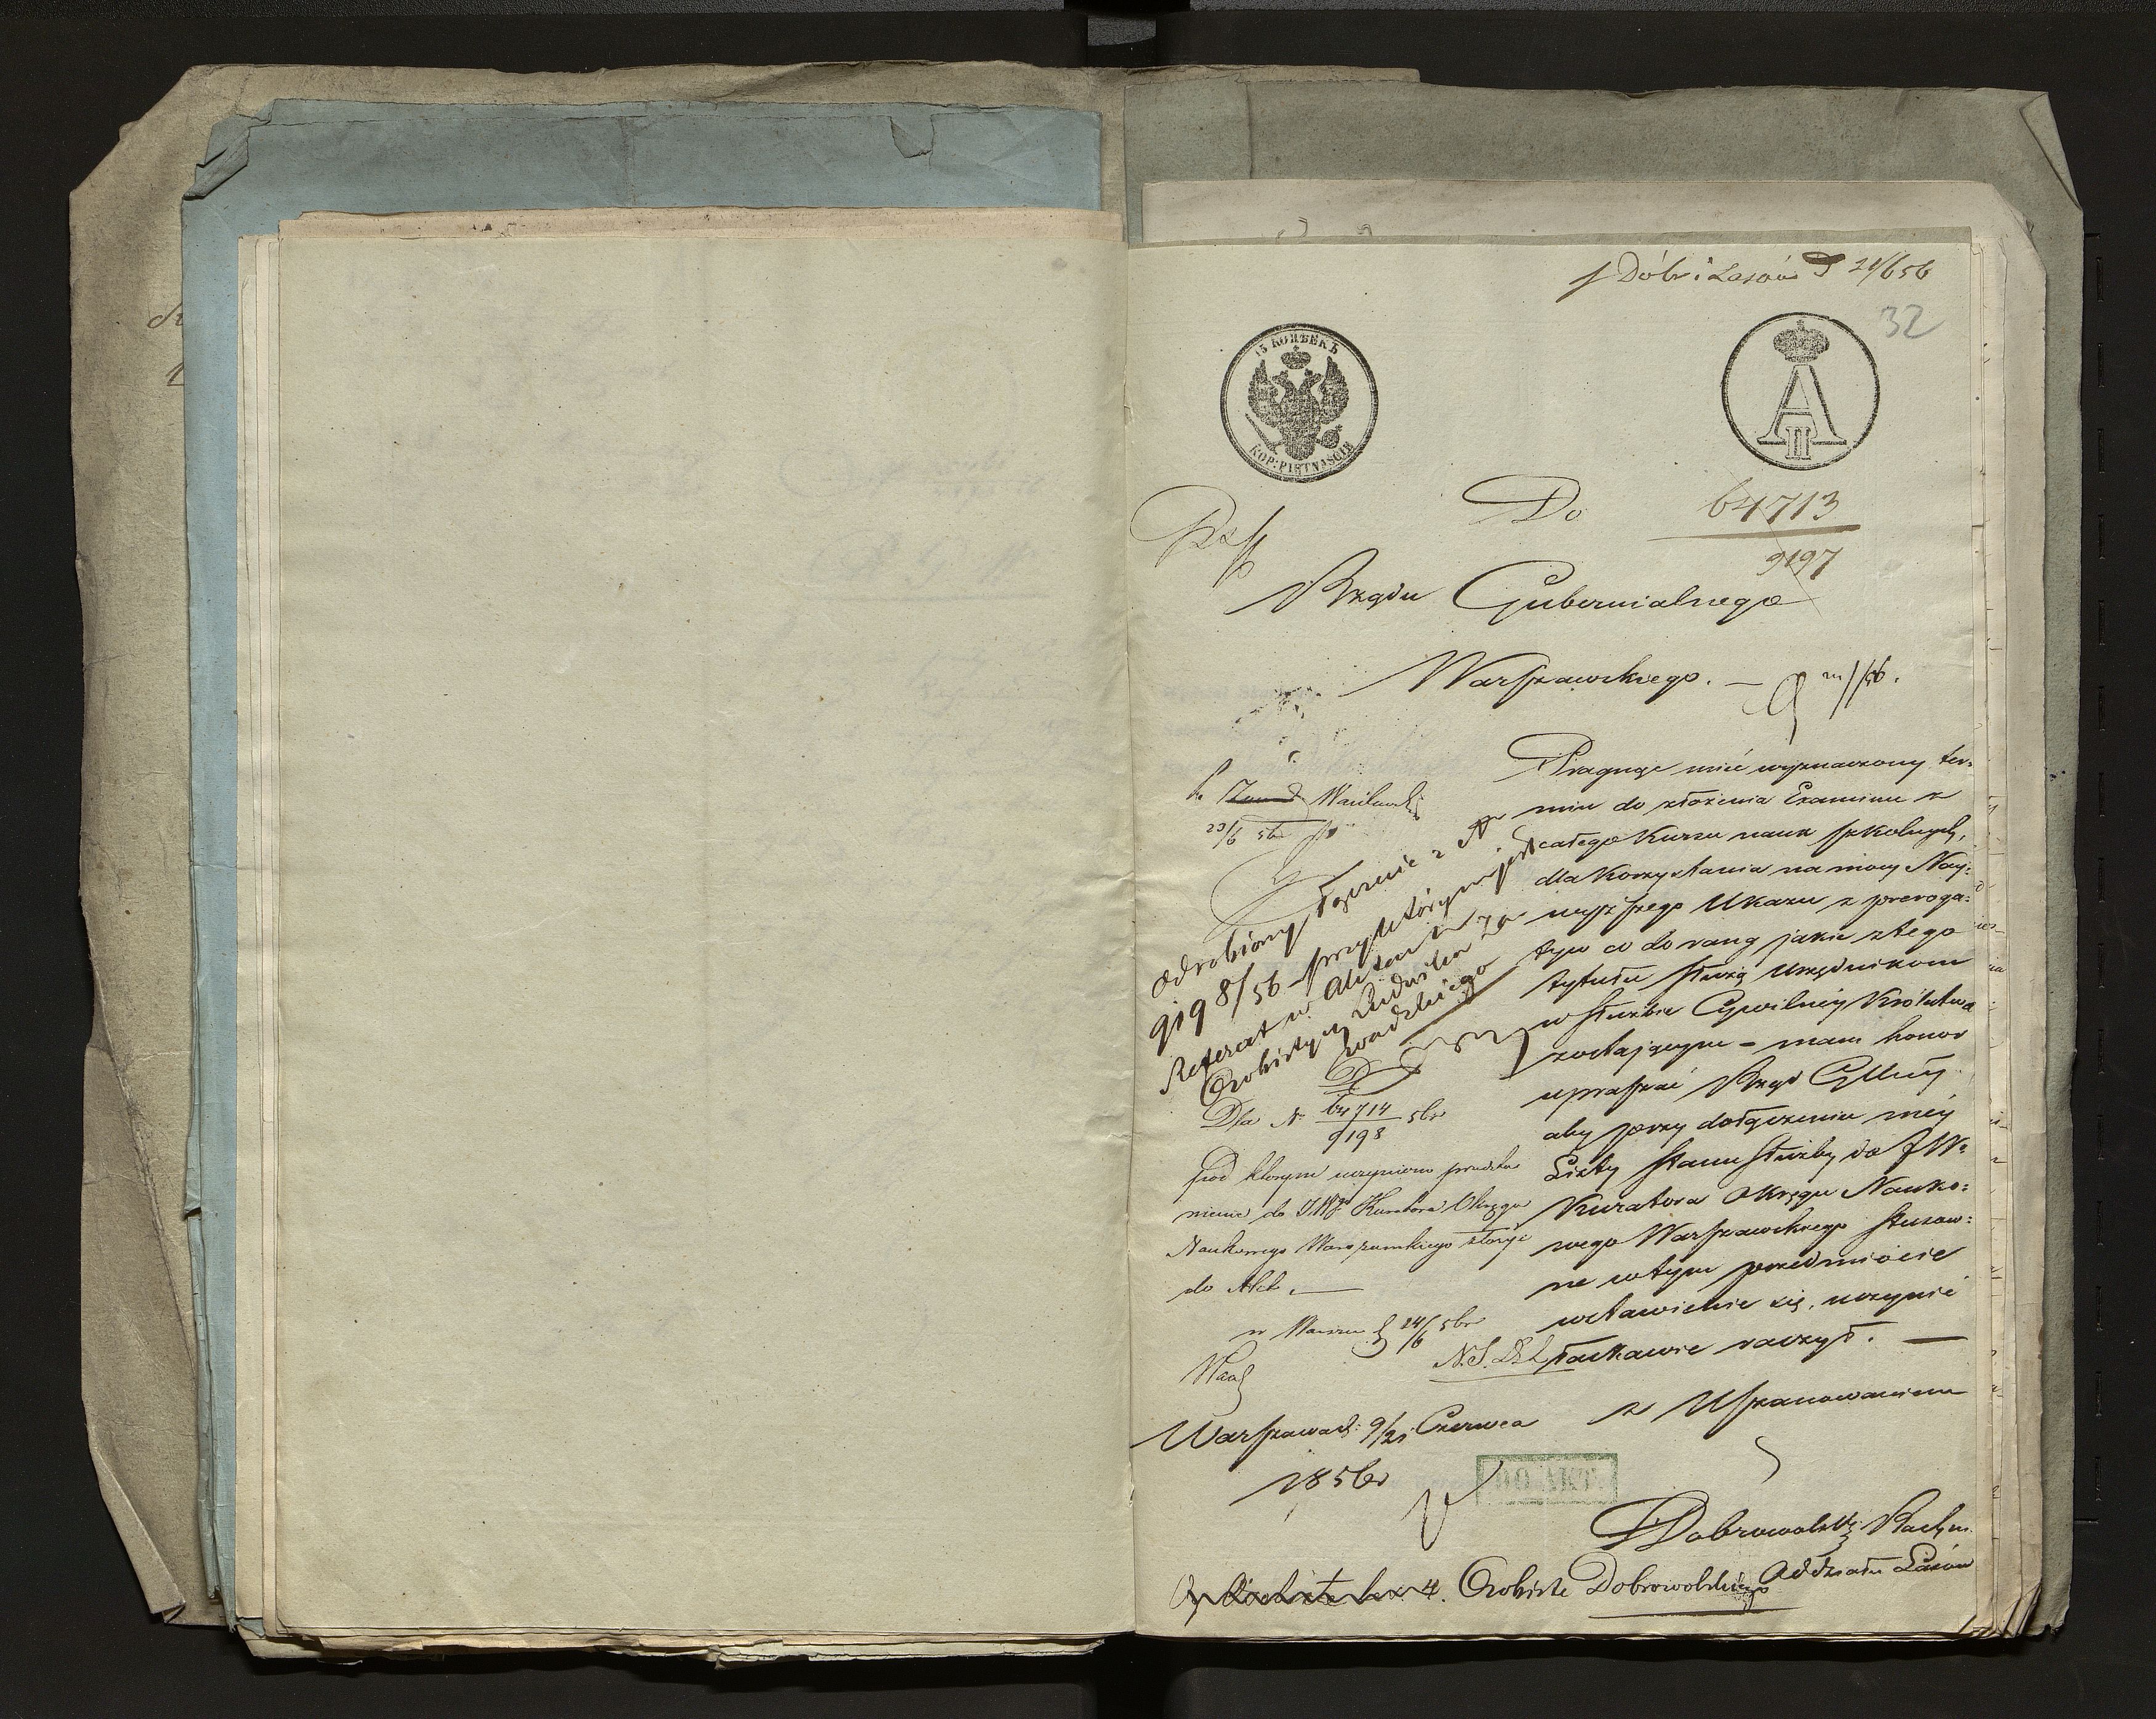 Dóbr i Lasów 21/6 56
32
15 КОПѢЕКЪ
KOP: PIĘTNAŚCIE
A II
Do
64713
9197
Rządu Gubernialnego
Warszawskiego. —
Pragnąc mieć wyznaczony ter=
min do złożenia Examinu z
całego Kursu nauk szkolnych,
dla korzystania na mocy Nay=
wyższego Ukazu z preroga=
tyw co do rang jakie z tego
tytułu służą Urzędnikom
w Służbie Cywilnéj Królestwa
zostającym – mam honor
upraszać Rząd Gllny
aby przy dołączeniu méj
Listy Stanu Służby do JW=
Kuratora Okręgu Nauko=
wego Warszawskiego stosow=
ne w tym przedmiocie
wstawienie się, uczynić
łaskawie raczył. —
z Uszanowaniem
Dobrowolski Rachm.
Oddziału Lasów
Wasilewski
23/6 56
odrobiony łącznie z N
9198/56 przy którym jest
Referat w Aktach
Osobistych Ludwika Za
wadzkiego
Dla N 64714 56r
9198
pod którym uczyniono przedsta
wienie do JWgo Kuratora Okręgu
Naukowego Warszawskiego złożyć
do Akt. —
w Warsz. 24/6 56r
Warszawa d: 9/21 Czerwca
1856r
DO AKT.
4. Osobiste Dobrowolskiego